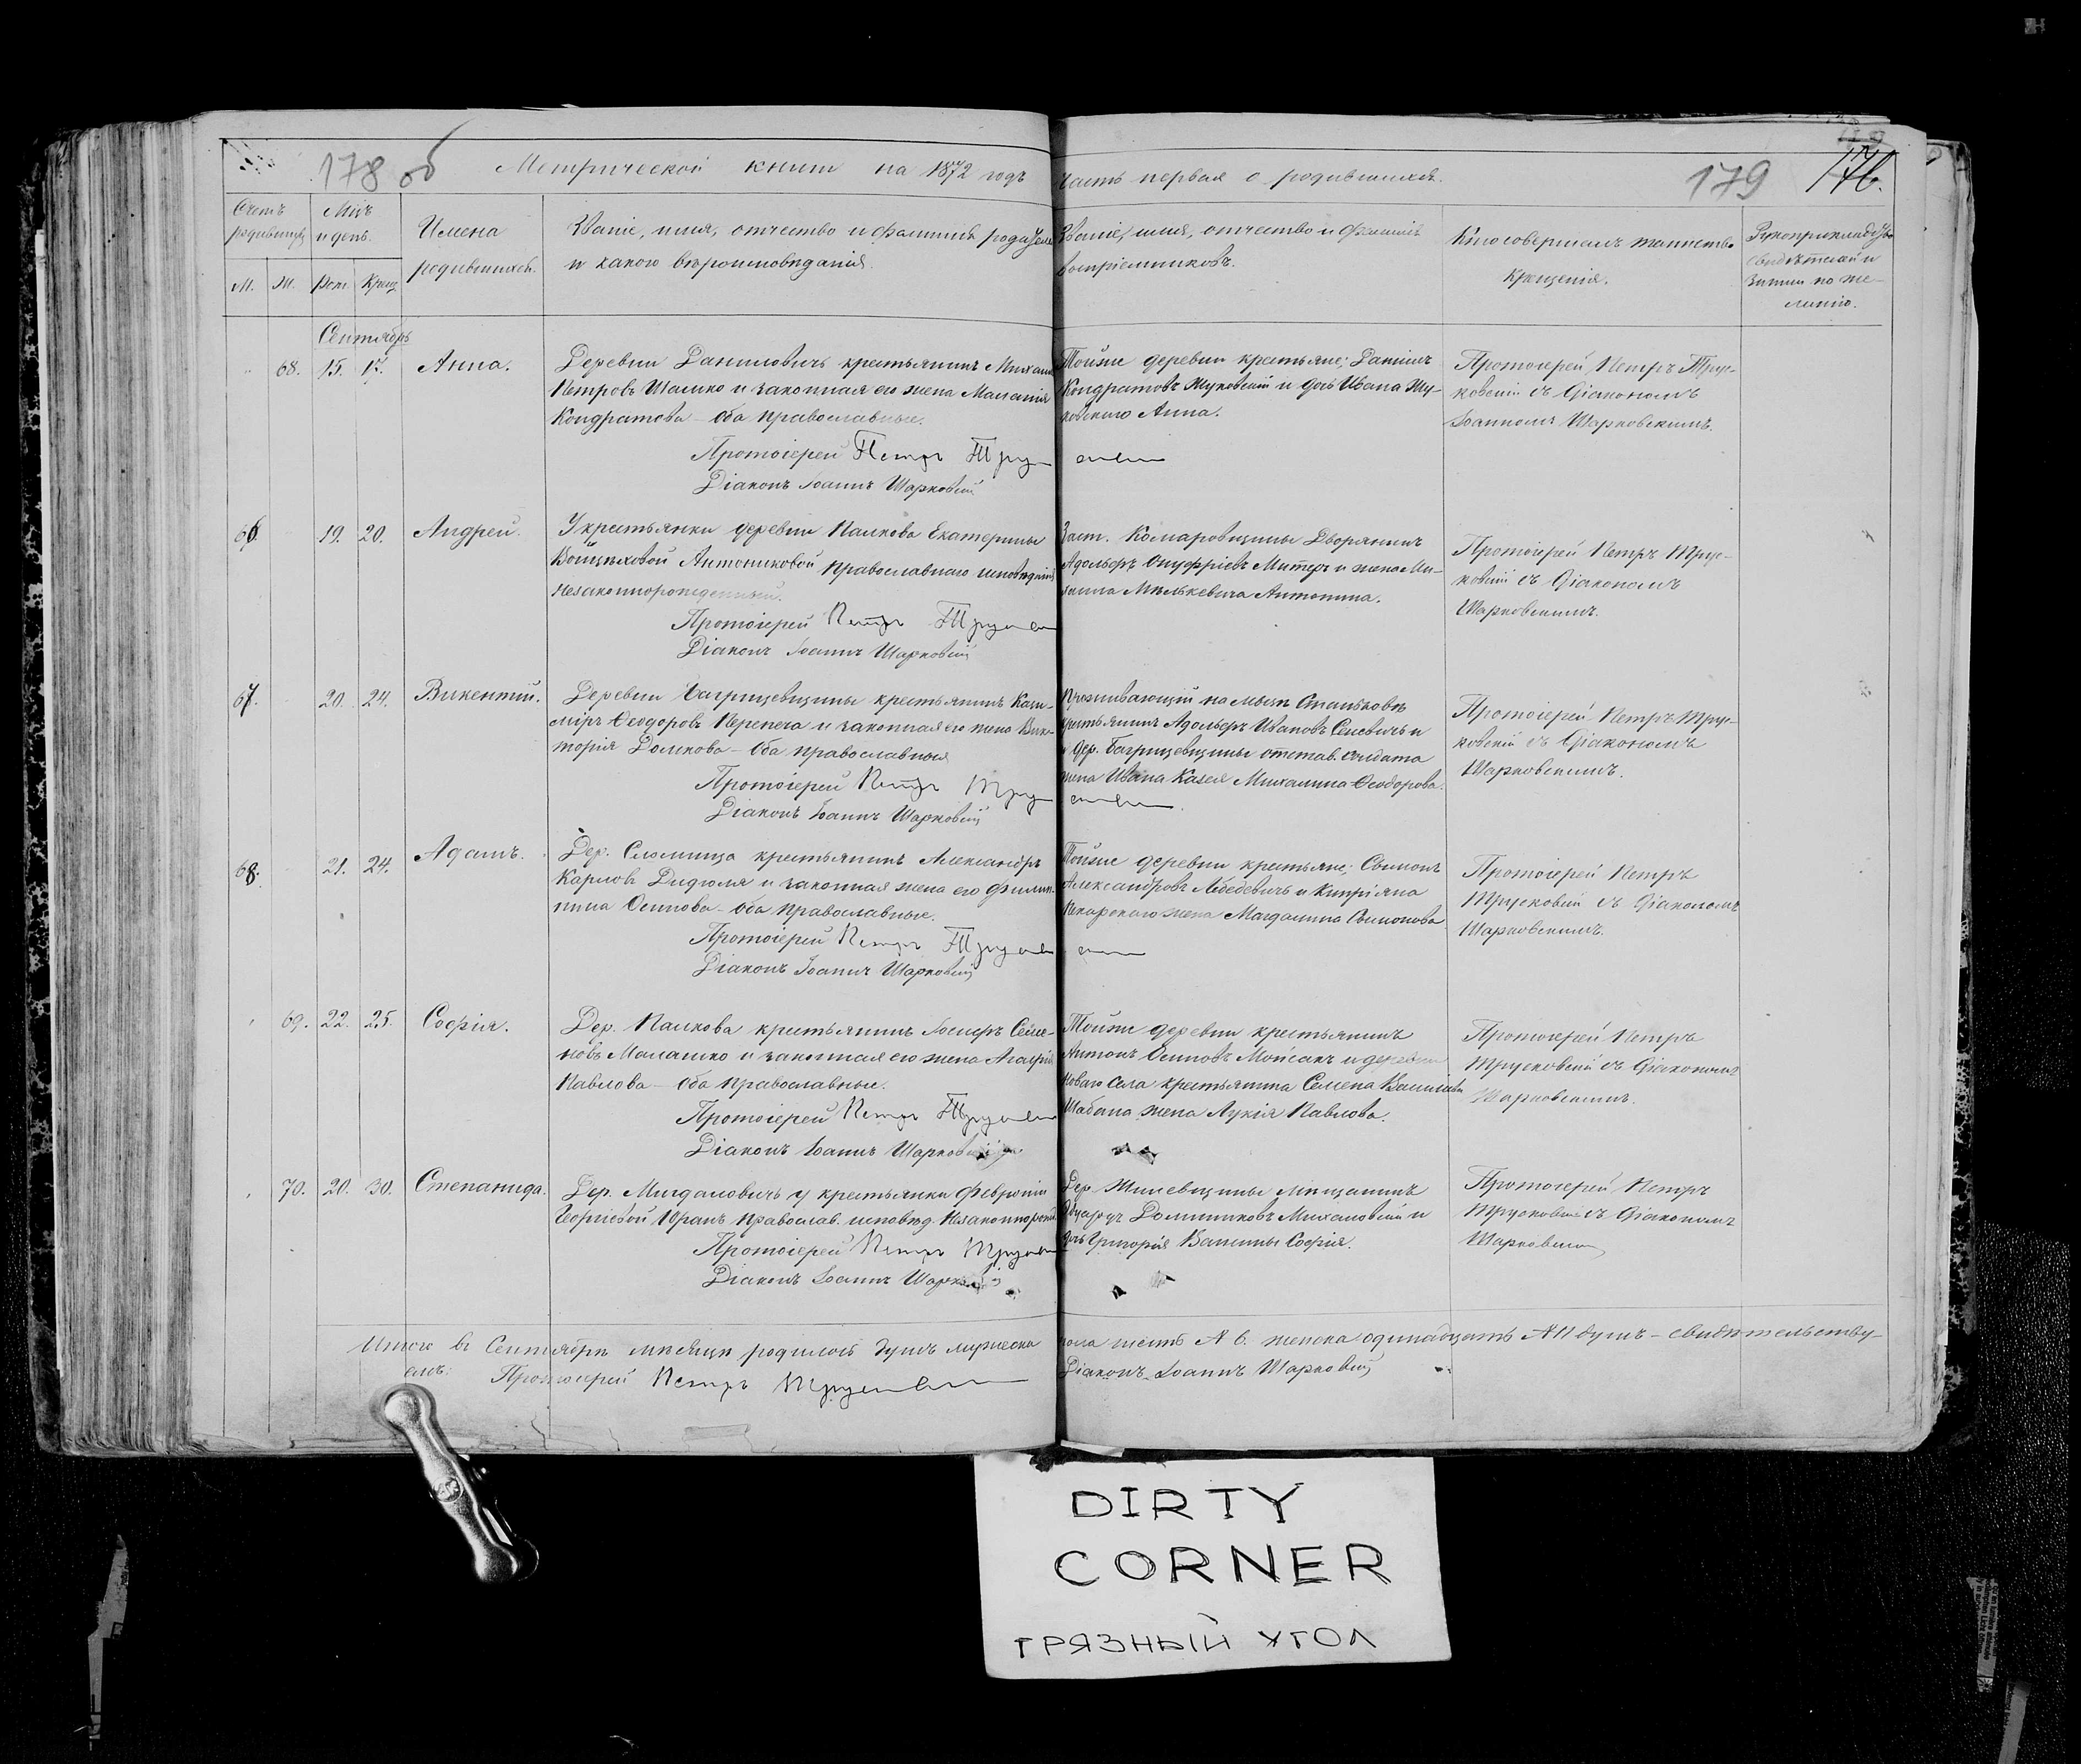 178 об
Метрической книги на 1872 годъ часть первая о родившихся.
179 176.
Счетъ родившихся
Мѣс. и день.
Имена родившихся.
Званіе, имя, отчество и фамилія родителей
и какого вѣроисповѣданія.
Званіе, имя, отчество и фамилія
воспріемниковъ.
Кто совершалъ таинство
крещенія.
Рукоприкладство
свидѣтелей
записи по же-
ланію.
М. Ж. Рож. Крещ.
Сентябрь
68. 15. 17. Анна.
Деревни Даниловичъ крестьянинъ Михаилъ
Петровъ Шашко и законная его жена Маланія
Кондратова – оба православные.
Протоіерей Петръ Трусковскій
Діаконъ Іоаннъ Шарковскій
Тойже деревни крестьяне; Даніилъ
Кондратовъ Жуковскій и дочь Ивана Жу-
ковскаго Анна.
Протоіерей Петръ Трус-
ковскій съ Діакономъ
Іоанномъ Шарковскимъ.
66. 19. 20. Андрей.
У крестьянки деревни Палкова Екатерины
Войцѣховой Антониковой православнаго исповѣданія
незаконнорожденный.
Протоіерей Петръ Трусковскій
Діаконъ Іоаннъ Шарковскій
Заст. Комаровщины Дворянинъ
Адольфъ Онуфріевъ и жена Ми-
хаила Милькевича Антонина.
Протоіерей Петръ Трус-
ковскій съ Діакономъ
Шарковскимъ.
67. 20. 24. Викентій.
Деревни Багрицевщины крестьянинъ Кази-
міръ Ѳеодоровъ Перепеча и законная его жена Вик-
торія – оба православные
Протоіерей Петръ Трусковскій
Діаконъ Іоаннъ Шарковскій
Проживающій на Станьковѣ
крестьянинъ Адольфъ Ивановъ Сеневичъ и
дер. Багрицевщины отстав. солдата
жена Ивана Казея Михалина Ѳеодорова.
Протоіерей Петръ Трус-
ковскій съ Діакономъ
Шарковскимъ.
68. 21. 24. Адамъ.
Дер. Слобоица крестьянинъ Александръ
Карловъ Дидюля и законная жена его Филип-
пина Осипова – оба православные.
Протоіерей Петръ Трусковскій
Діаконъ Іоаннъ Шарковскій
Тойже деревни крестьяне; Сымонъ
Александровъ Лебедевичъ и Кипріяна
Пекарскаго жена Магдалина Сымонова
Протоіерей Петръ
Трусковскій съ Діакономъ
Шарковскимъ.
69. 22. 25. Софія.
Дер. Палкова крестьянинъ Іосифъ Семе-
новъ Малашко и законная его жена Агафія
Павлова – оба православные.
Протоіерей Петръ Трусковскій
Діаконъ Іоаннъ Шарковскій
Тойже деревни крестьянинъ
Антонъ Осиповъ Мойсакъ и деревни
Новаго Села крестьянина Семена
Шабана жена Лукія Павлова.
Протоіерей Петръ
Трусковскій съ Діакономъ
Шарковскимъ.
70. 20. 30. Степанида.
Дер. Мигдаловичъ у крестьянки Февроніи
Георгіевой Юранъ Православ. исповѣд. незаконнорожд.
Протоіерей Петръ Трусковскій
Діаконъ Іоаннъ Шарковскій
Дер. мѣщанинъ
Эдуардъ Доминиковъ Михаловскій и
дочь Григорія София.
Протоіерей Петръ
Трусковскій съ Діакономъ
Шарковскимъ
Итого въ Сентябрѣ мѣсяцѣ родилось душъ мужеска пола шесть № 6. женска одинадцать № 11 душъ – свидѣтельству-
емъ: Протоіерей Петръ Трусковскій Діаконъ Іоаннъ Шарковскій
DIRTY
CORNER
ГРЯЗНЫЙ УГОЛ